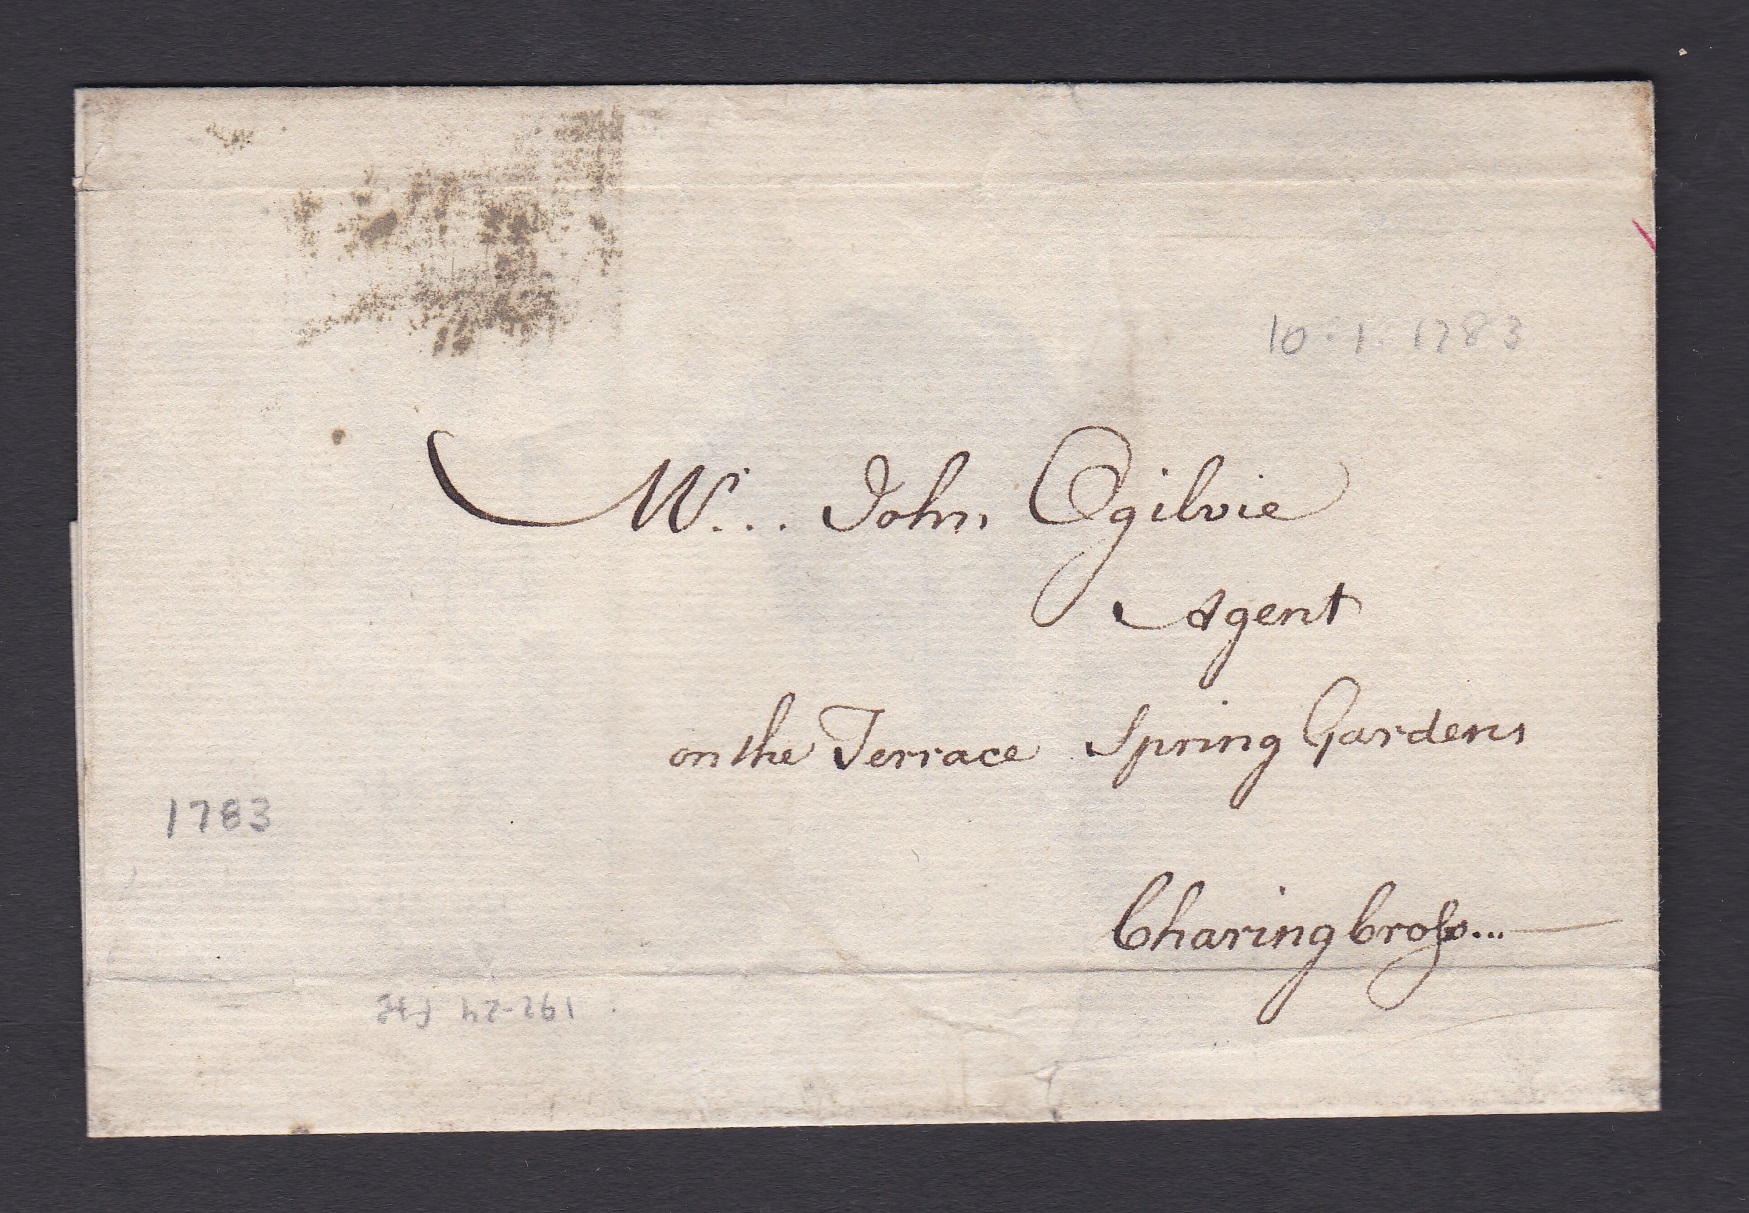 10.1.1783
Mr... John Ogilvie
Agent
on the Terrace Spring Gardens
1783
Charing Cross...